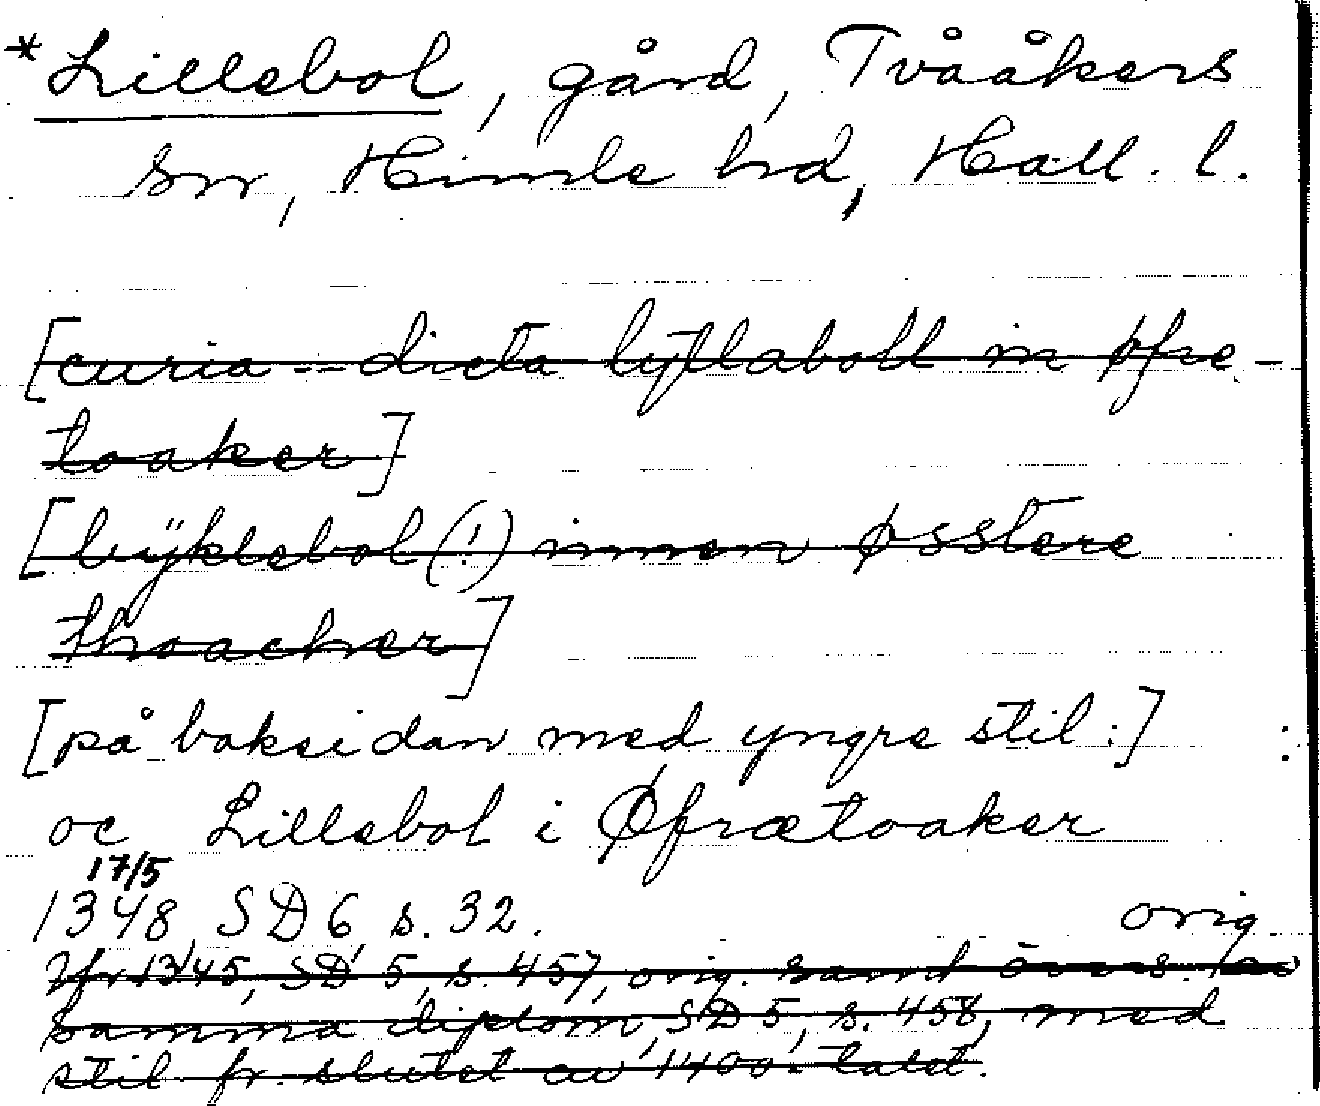 *Lillebol, gård, Tvååkers
sn, Himle hd, Hall. l.
[curia -- dicta lyllaboll in øfre-
toaker]
[lÿklebol(!) innen øsstere
thoacher]
[på baksidan med yngre stil:]
oc Lillebol i Øfrætoaker
17/5
1348, SD 6, s. 32. orig
1345, SD 5, s. 457, orig. samt övers. av
samma diplom, SD 5, s. 458, med
stil fr. slutet av 1400-talet.